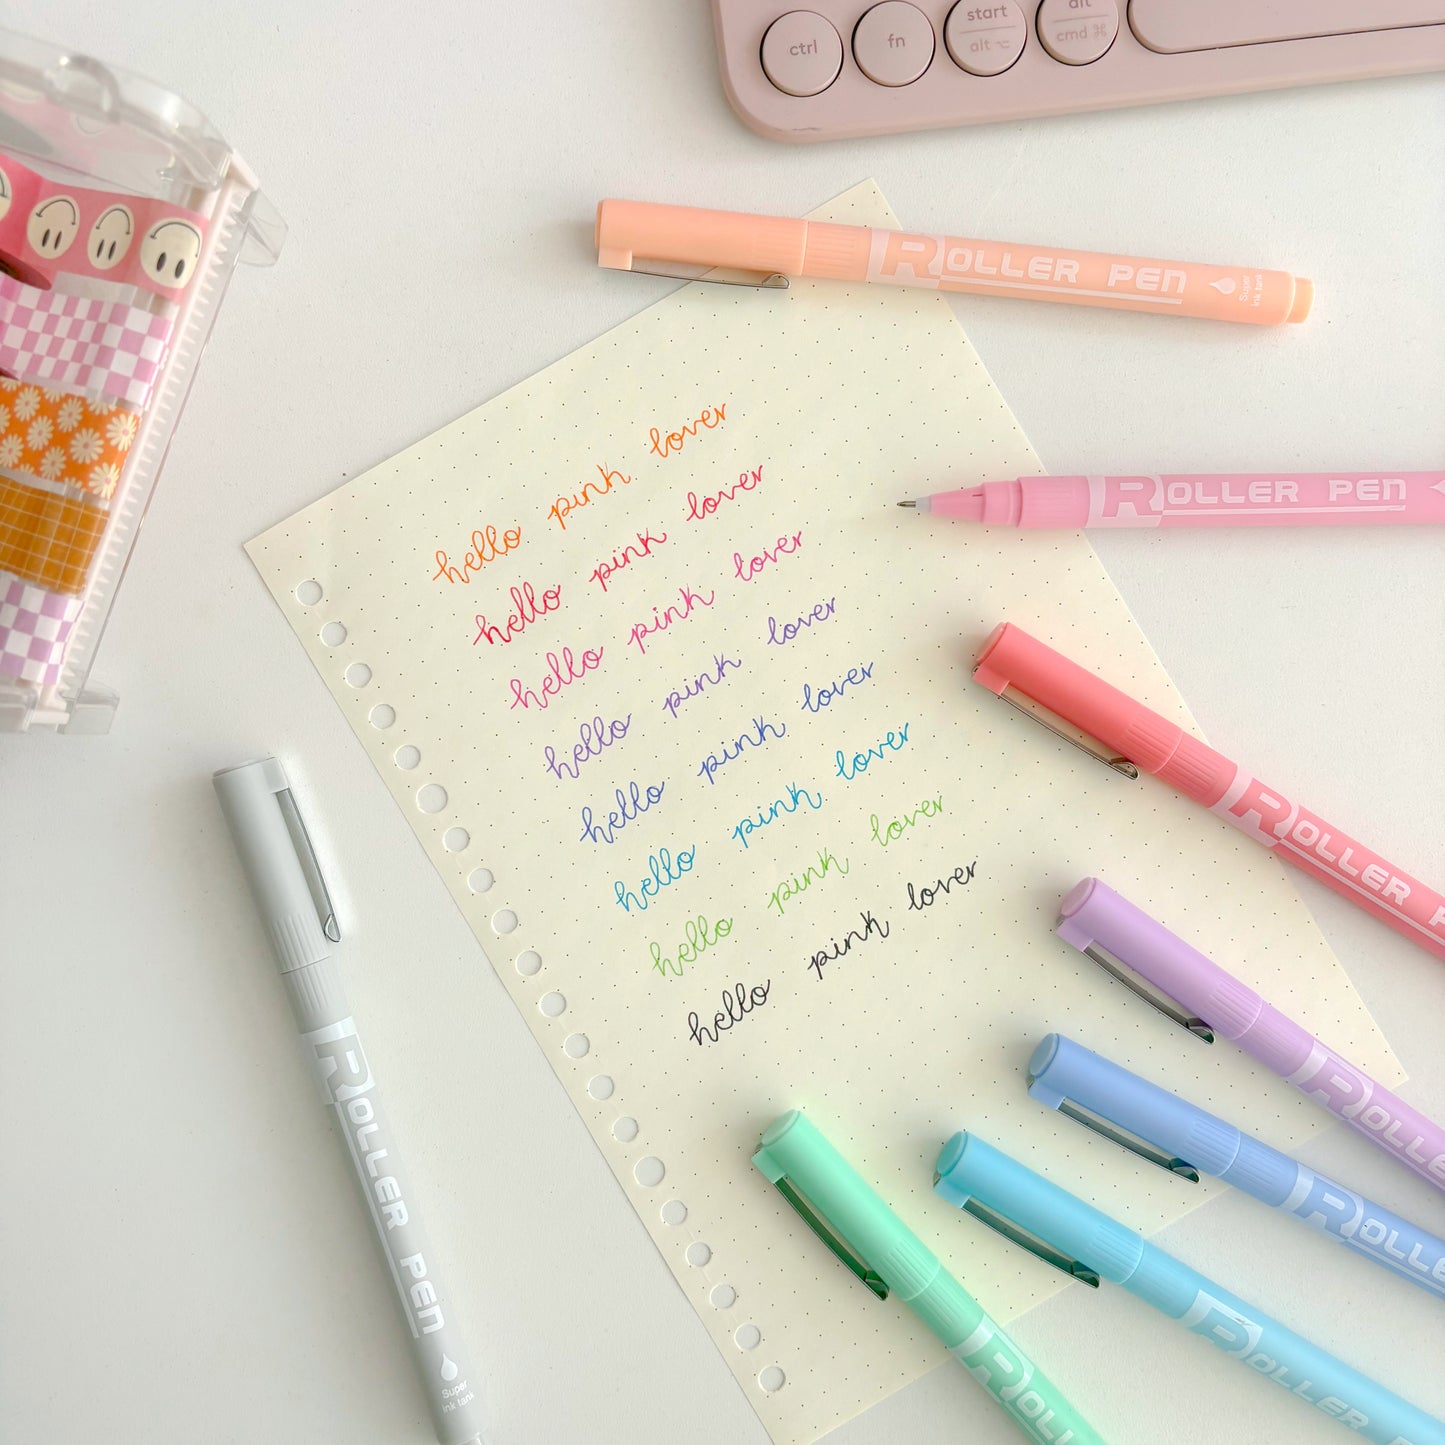 ctrl
fn
start
alt ⌥
alt
cmd ⌘
ROLLER PEN
Super
ink tank
hello pink lover
hello pink lover
hello pink lover
hello pink lover
hello pink lover
hello pink lover
hello pink lover
hello pink lover
ROLLER PEN
ROLLER P
ROLLE
ROLLE
ROLLER PE
ROLL
ROLLER PEN
Super
ink tank